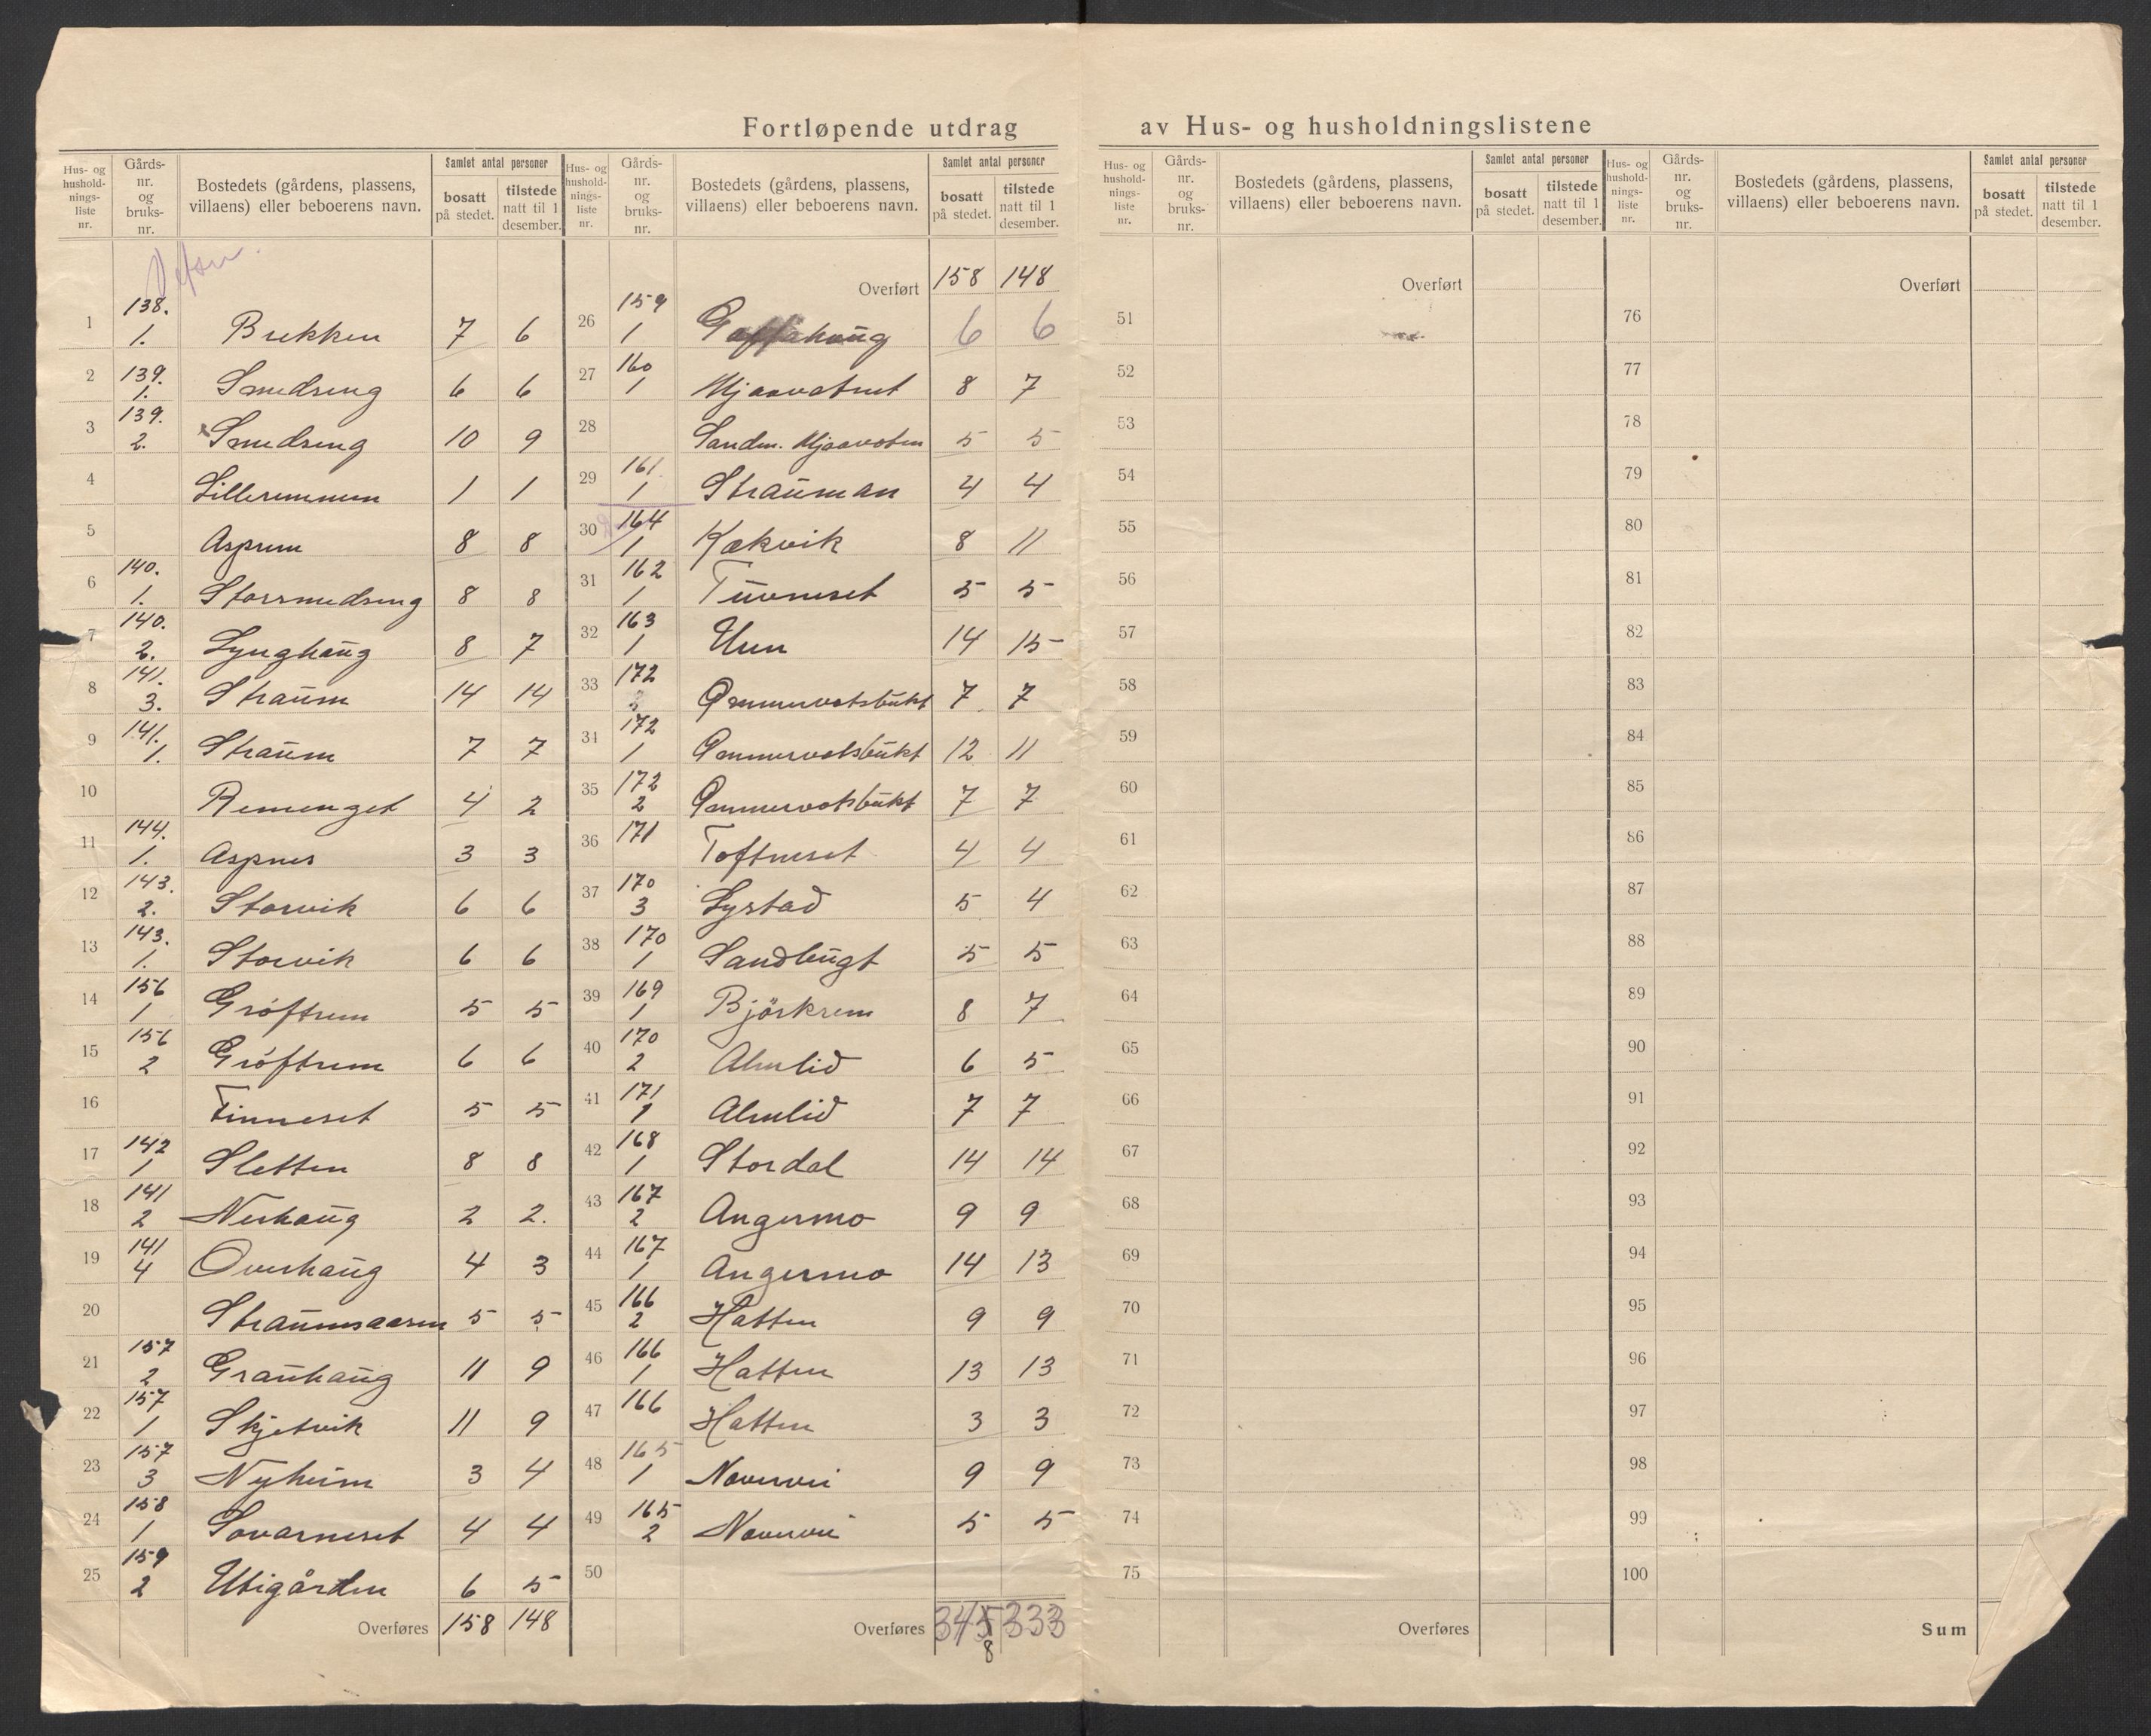 Fortløpende utdrag av Hus- og husholdningslistene
Hus- og hushold-nings-liste nr. Gårds-nr. og bruks-nr. Bostedets (gårdens, plassens, villaens) eller beboerens navn. Samlet antal personer bosatt på stedet. tilstede natt til 1 desember.
1 138. 1. Brekken 7 6
2 139. 1. Smedseng 6 6
3 139. 2. Smedseng 10 9
4 Lilleremmen 1 1
5 Asprem 8 8
6 140. 1. Storsmedseng 8 8
7 140. 2. Lynghaug 8 7
8 141. 3. Straum 14 14
9 141. 1. Straum 7 7
10 Remenget 4 2
11 144. 1. Aspnes 3 3
12 143. 2. Storvik 6 6
13 143. 1. Storvik 6 6
14 156 1 Grøftrem 5 5
15 156 2 Grøftrem 6 6
16 Finneset 5 5
17 142 1 Sletten 8 8
18 141 2 Nerhaug 2 2.
19 141 4 Overhaug 4 3
20 Straumsaasen 5 5
21 157 2 Grauhaug 11 9
22 157 1 Skjetvik 11 9
23 157 3 Nyheim 3 4
24 158 1 Sovarneset 4 4
25 159 2 Utigården 6 5
Overføres 158 148
Hus- og hushold-nings-liste nr. Gårds-nr. og bruks-nr. Bostedets (gårdens, plassens, villaens) eller beboerens navn. Samlet antal personer bosatt på stedet. tilstede natt til 1 desember.
Overført 158 148
26 159 1 6 6
27 160 1 Mjaavatnet 8 7
28 Sandm. Mjaavoten 5 5
29 161 1 Strauman 4 4
30 164 1 Kækvik 8 11
31 162 1 Tuvneset 5 5
32 163 1 Unn 14 15
33 172 3 Ømmervatsbukt 7 7
31 172 1 Ømmervatsbukt 12 11
35 172 2 Ømmervatsbukt 7 7
36 171 Toftneset 4 4
37 170 3 Lystad 5 4
38 170 1 Sandbugt 5 5
39 169 1 Björkrem 8 7
40 170 2 Almlid 6 5
41 171 1 Almlid 7 7
42 168 1 Stordal 14 14
43 167 2 Angermo 9 9
44 167 1 Angermo 14 13
45 166 2 Hatten 9 9
46 166 1 Hatten 13 13
47 166 Hatten 3 3
48 165 1 Nævervei 9 9
49 165 2 Nævervei 5 5
50
Overføres 345 333
8
Hus- og hushold-nings-liste nr. Gårds-nr. og bruks-nr. Bostedets (gårdens, plassens, villaens) eller beboerens navn. Samlet antal personer bosatt på stedet. tilstede natt til 1 desember.
Overført
51
52
53
54
55
56
57
58
59
60
61
62
63
64
65
66
67
68
69
70
71
72
73
74
75
Overføres
Hus- og hushold-nings-liste nr. Gårds-nr. og bruks-nr. Bostedets (gårdens, plassens, villaens) eller beboerens navn. Samlet antal personer bosatt på stedet. tilstede natt til 1 desember.
Overført
76
77
78
79
80
81
82
83
84
85
86
87
88
89
90
91
92
93
94
95
96
97
98
99
100
Sum